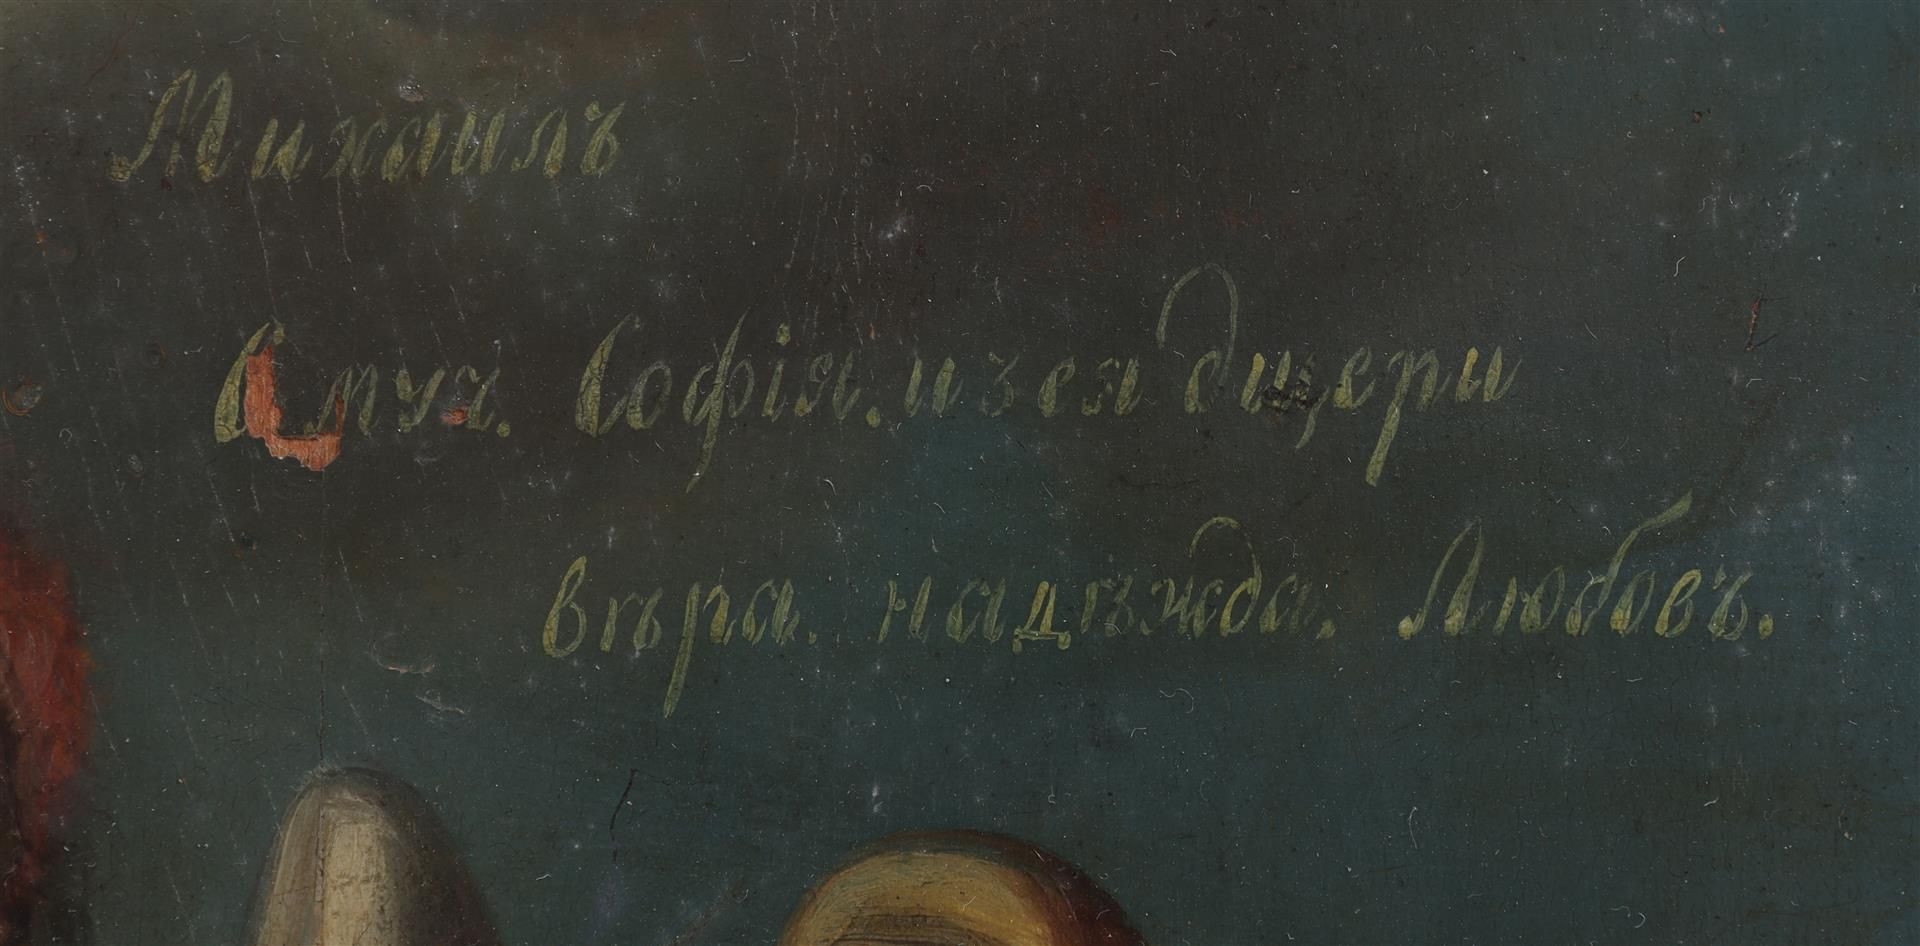 Михаилъ
С. муч. Софія. и зея дщери
вѣра. надѣжда. Любовъ.